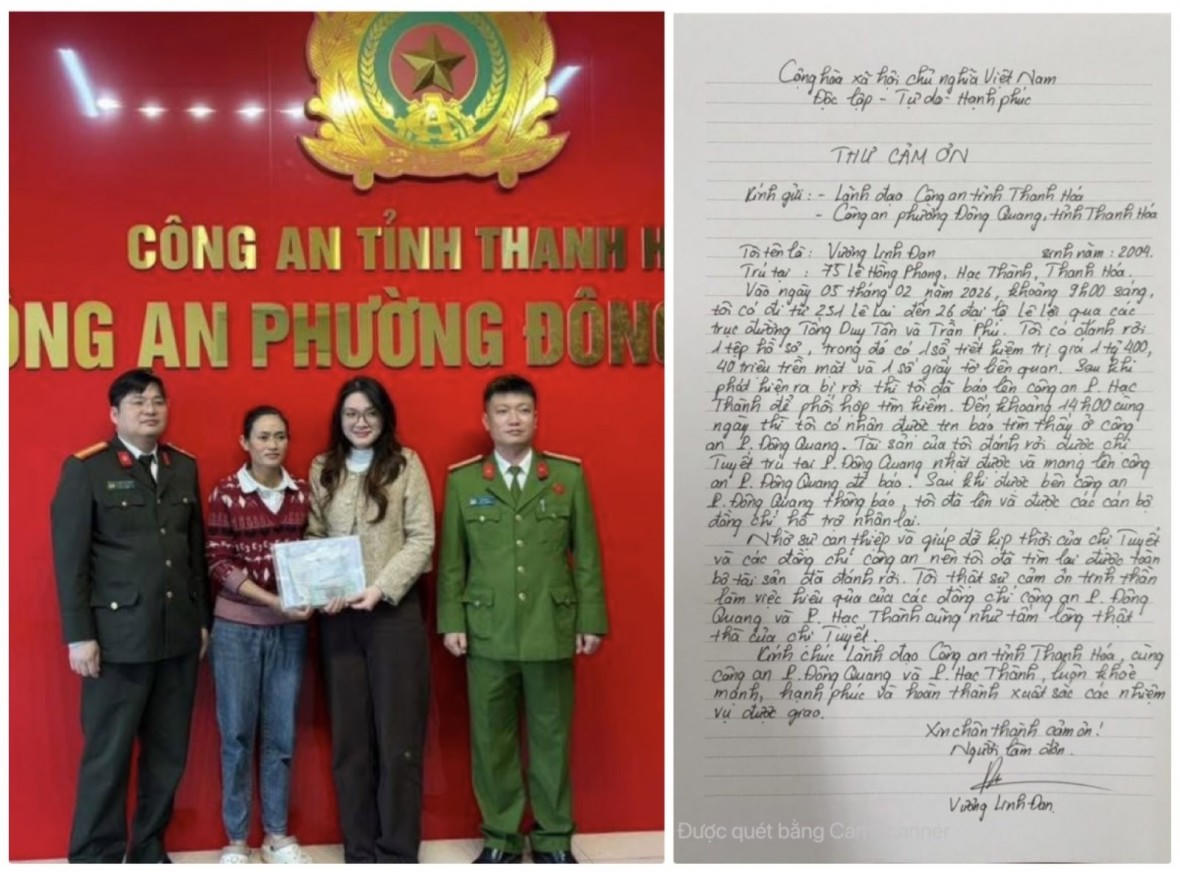 CÔNG AN TỈNH THANH H
ÔNG AN PHƯỜNG ĐÔNG
Cộng hòa xã hội chủ nghĩa Việt Nam
Độc lập - Tự do - Hạnh phúc
THƯ CẢM ƠN
Kính gửi : - Lãnh đạo Công an tỉnh Thanh Hóa
- Công an phường Đông Quang, tỉnh Thanh Hóa
Tôi tên là : Vương Linh Đan sinh năm : 2004.
Trú tại : 75 Lê Hồng Phong, Hạc Thành, Thanh Hóa.
Vào ngày 05 tháng 02 năm 2026, khoảng 9h00 sáng,
tôi có đi từ 251 Lê Lai đến 26 đại lộ Lê Lợi qua các
trục đường Tống Duy Tân và Trần Phú. Tôi có đánh rơi
1 tệp hồ sơ, trong đó có 1 sổ tiết kiệm trị giá 1 tỷ 400,
40 triệu tiền mặt và 1 số giấy tờ liên quan. Sau khi
phát hiện ra bị rơi thì tôi đã báo lên công an P. Hạc
Thành để phối hợp tìm kiếm. Đến khoảng 14h00 cùng
ngày thì tôi có nhận được tin báo tìm thấy ở công
an P. Đông Quang. Tài sản của tôi đánh rơi được chị
Tuyết trú tại P. Đông Quang nhặt được và mang lên công
an P. Đông Quang để báo. Sau khi được bên công an
P. Đông Quang thông báo, tôi đã lên và được các cán bộ
đồng chí hỗ trợ nhận lại.
Nhờ sự can thiệp và giúp đỡ kịp thời của chị Tuyết
và các đồng chí công an nên tôi đã tìm lại được toàn
bộ tài sản đã đánh rơi. Tôi thật sự cảm ơn tinh thần
làm việc hiệu quả của các đồng chí công an P. Đông
Quang và P. Hạc Thành cũng như tấm lòng thật
thà của chị Tuyết.
Kính chúc Lãnh đạo Công an tỉnh Thanh Hóa, cùng
công an P. Đông Quang và P. Hạc Thành, luôn khỏe
mạnh, hạnh phúc và hoàn thành xuất sắc các nhiệm
vụ được giao.
Xin chân thành cảm ơn!
Người làm đơn.
Vương Linh Đan
Được quét bằng CamScanner